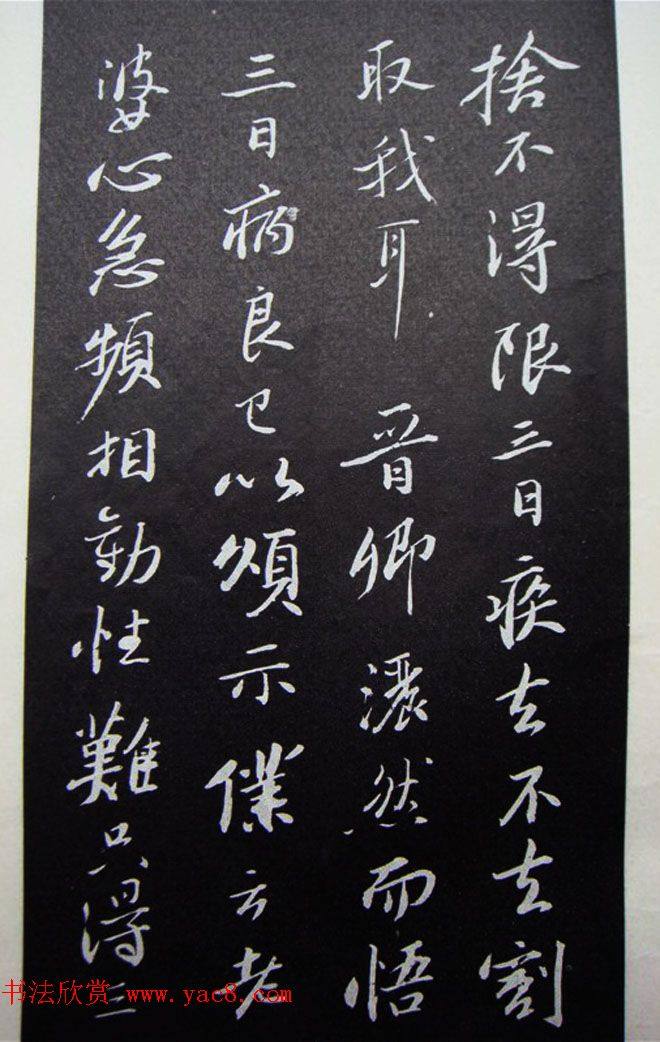 捨不得限三日疾去不去割
取我耳晋卿灑然而悟
三日病良已以頌示僕云老
婆心急頻相勸性難只得三
书法欣赏 www.yac8.com